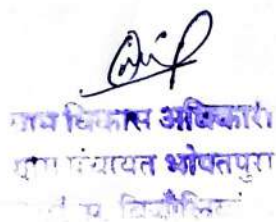 ग्राम विकास अधिकारी
ग्राम पंचायत भोपतपुरा
पं. स.